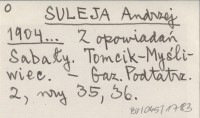 SULEJA Andrzej
1904... Z opowiadań
Sabały. Tomcik-Myśli-
wiec. - Gaz. Podtatrz.
2, nry 35, 36.